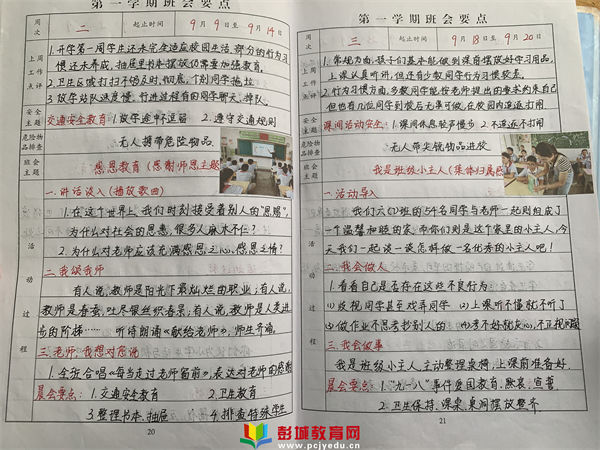 第一学期班会要点
周次 二 起止时间 9月9日至9月14日
上周工作点评
1.开学第一周学生还未完全适应校园生活,部分的行为习
惯还未养成,抽屉里书本摆放仍需要加强教育,
2.卫生区域打扫不够及时、彻底,个别同学拖拉
3.放学站队速度慢,行进过程有的同学聊天、掉队。
安全主题
交通安全教育:1.放学途中不逗留 2.遵守交通规则
危险物品排查
无人携带危险物品
班会主题
感恩教育(感谢师恩主题
活动过程
一.讲话谈入(播放歌曲)
1.在这个世界上,我们时刻接受着别人的“恩赐”,
为什么对社会的恩惠,很多人麻木不仁?
2.为什么对老师应该充满感恩之心,感恩之情?
二.我颂我师
有人说,教师是阳光下最灿烂的职业;有人说,
教师是春蚕,吐尽银丝织春景;有人说,教师是人类进
步的阶梯……听诗朗诵《献给老师》,师生齐诵,
三.老师,我想对您说
1.全班合唱《每当走过老师窗前》,表达对老师的感激
晨会要点:1.交通安全教育 2.卫生教育
3.整理书本、抽屉 4.排查特殊学生
20
第一学期班会要点
周次 三 起止时间 9月18日至9月20日
上周工作点评
1.常规方面,孩子们基本能做到课前摆放好学习用品,
上课认真听讲,但还有少数同学行为习惯较差。
2.行为习惯方面,多数同学能按老师提出的要求约束自己
但也有几位同学到放后无事可做,在校园内追逐打闹
安全主题
课间活动安全:1.课间休息轻声慢步 2.不追逐不打闹
危险物品排查
无人带尖锐物品进校
班会主题
我是班级小主人(集体归属感
活动过程
一.活动导入
我们六(7)班的54名同学与老师一起则组成了
一个温馨和睦的家,而你们则是这个家里的小主人,今
天我们一起谈一谈怎样做一名优秀的小主人吧!
二.我会做人
1.看看自己是否存在这些不良行为
(1)歧视同学甚至戏弄同学 (2)上课听不懂就不听了
(3)做作业不思考抄别人的 (4)考不好就灰心,不正视
三.我会做事
我是班级小主人,主动整理桌椅,上课前准备好,
晨会要点:1.“九一八”事件爱国教育,默哀、宣誓
2.卫生保持,课桌、桌洞摆放整齐
21
彭城教育网
www.pcjyedu.cn